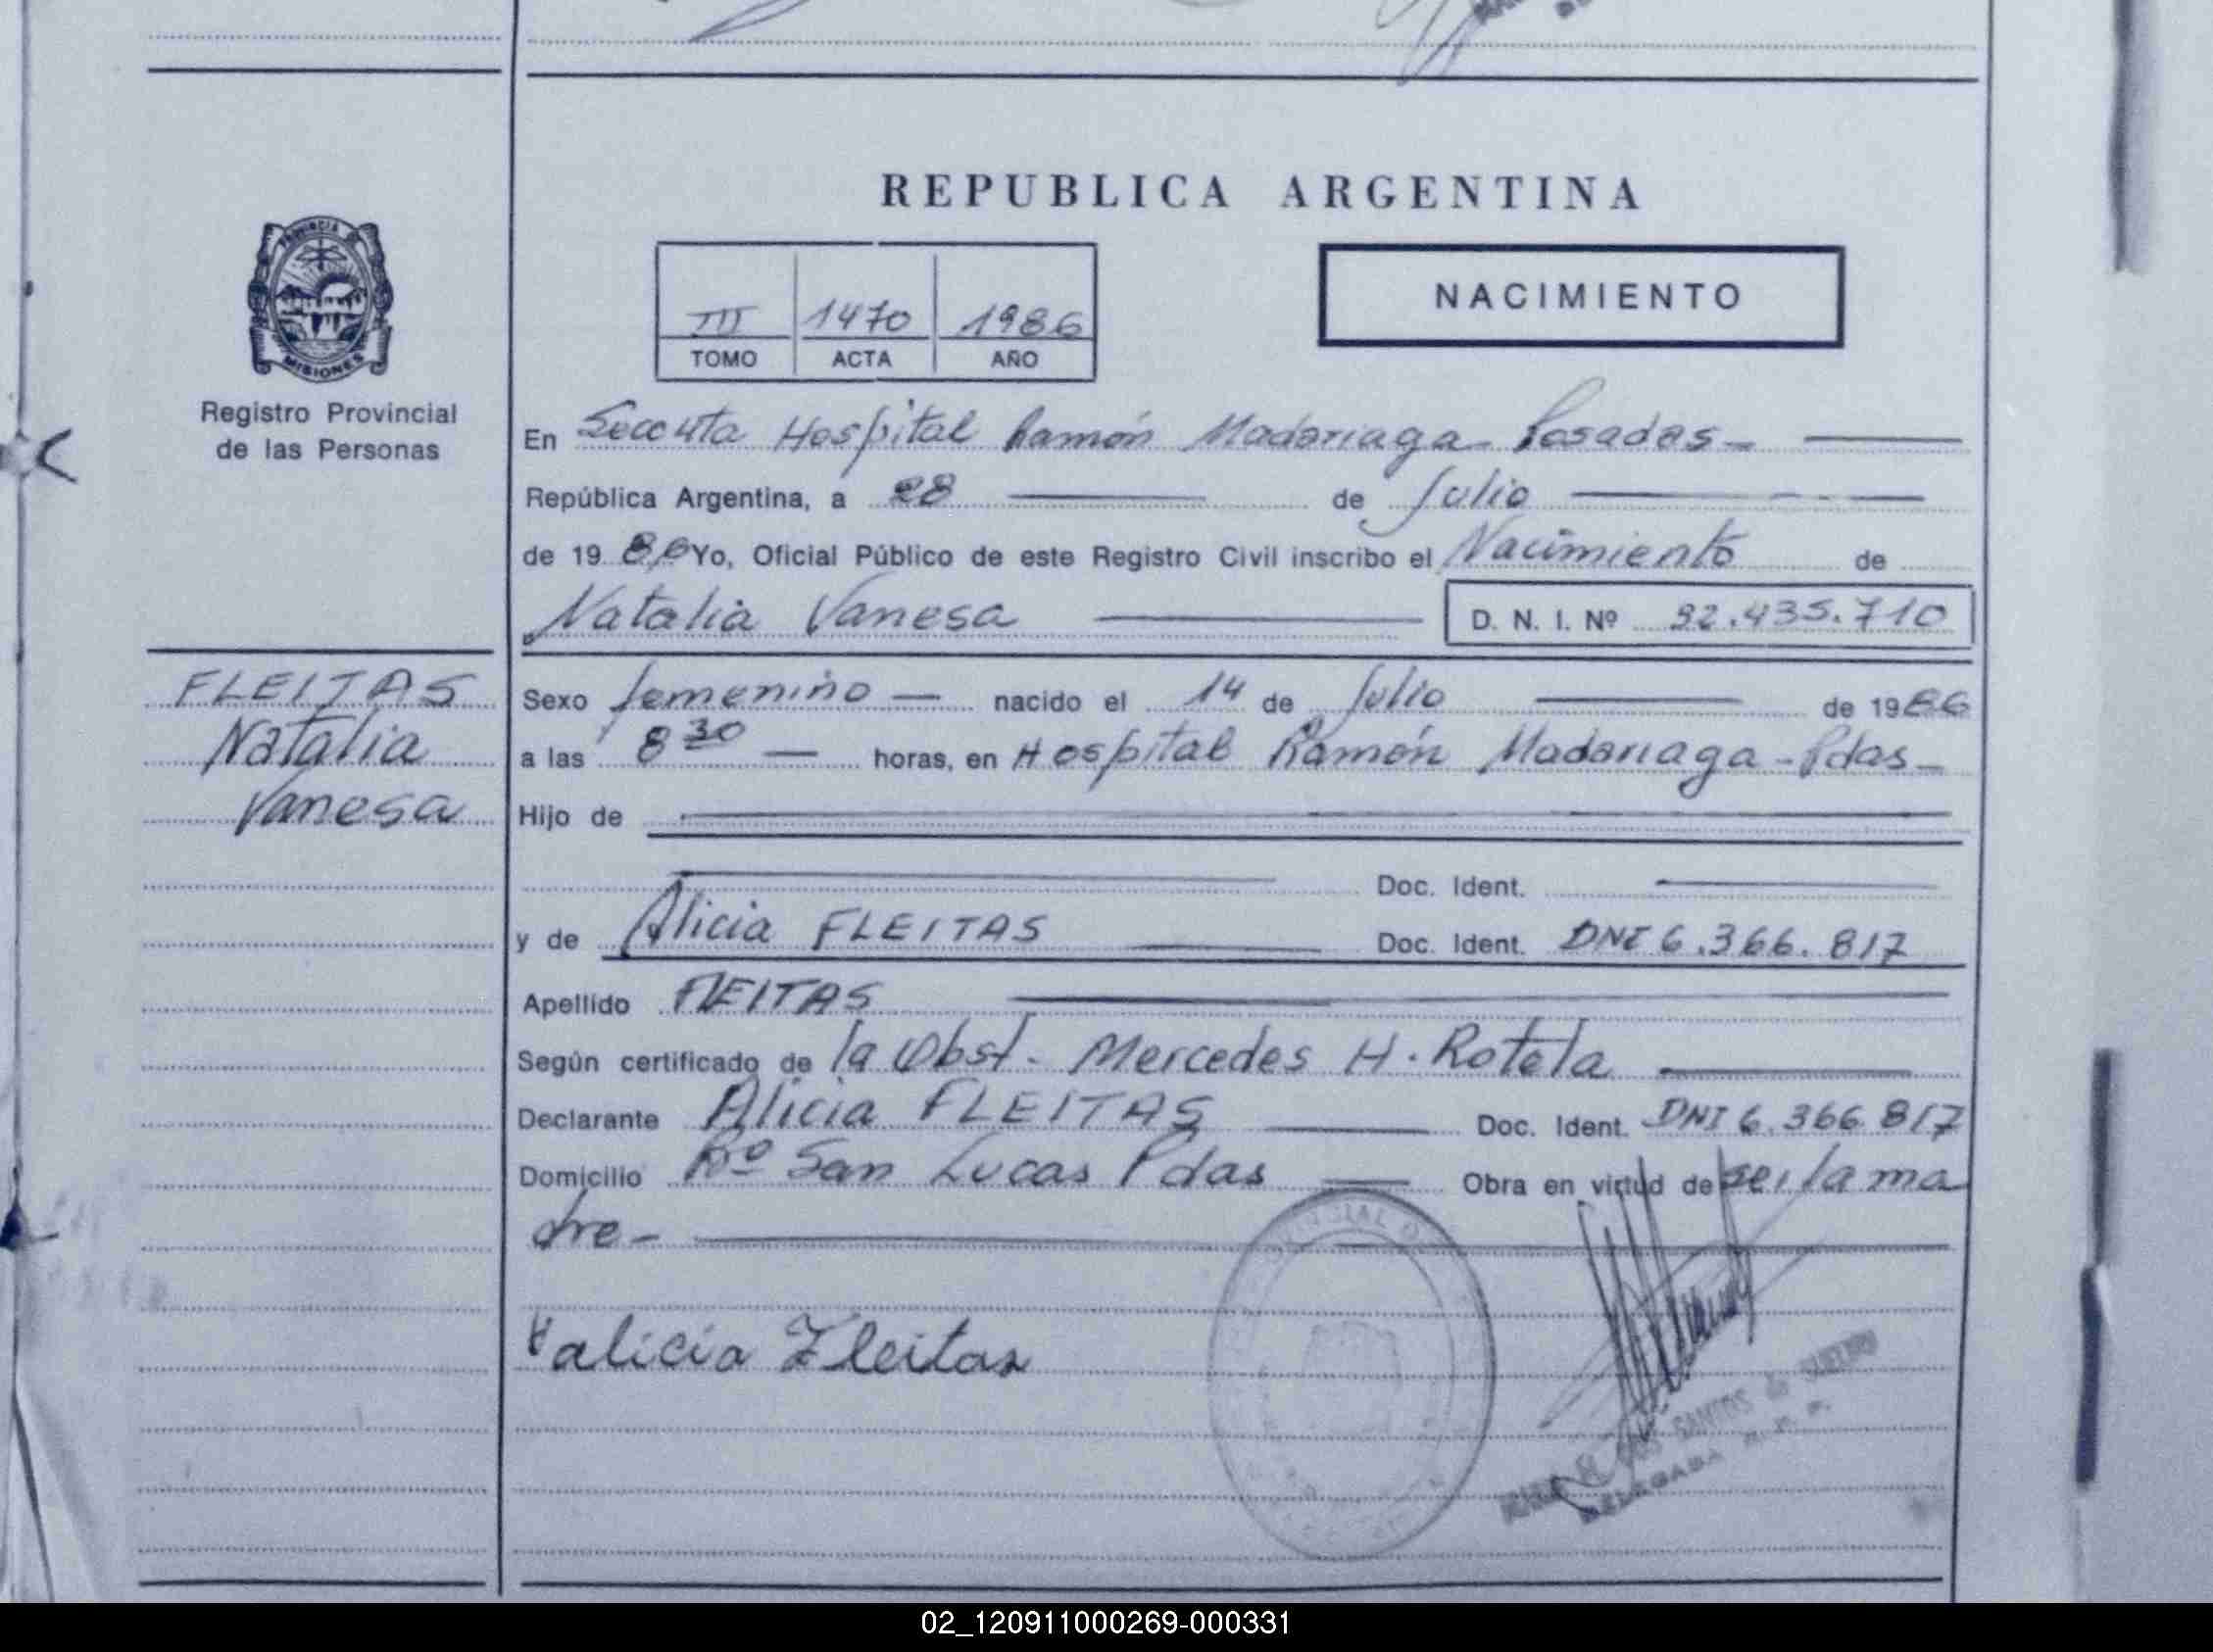 REPUBLICA ARGENTINA
PROVINCIA DE
MISIONES
Registro Provincial
de las Personas
III 1470 1986
TOMO ACTA AÑO
NACIMIENTO
En Seccuta Hospital Ramón Madariaga - Posadas -
República Argentina, a 28 de Julio
de 1986 Yo, Oficial Público de este Registro Civil inscribo el Nacimiento de
Natalia Vanesa D. N. I. Nº 32.435.710
FLEITAS
Natalia
Vanesa
Sexo femenino nacido el 14 de Julio de 1986
a las 8 30 horas, en Hospital Ramón Madariaga - Pdas -
Hijo de
Doc. Ident.
y de Alicia FLEITAS Doc. Ident. DNI 6.366.817
Apellido FLEITAS
Según certificado de la Obst. Mercedes H. Rotela
Declarante Alicia FLEITAS Doc. Ident. DNI 6.366.817
Domicilio Bº San Lucas Pdas Obra en virtud de ser la ma
dre -
alicia Fleitas
SANTOS de
DELEGADA R. P. P.
02_120911000269-000331